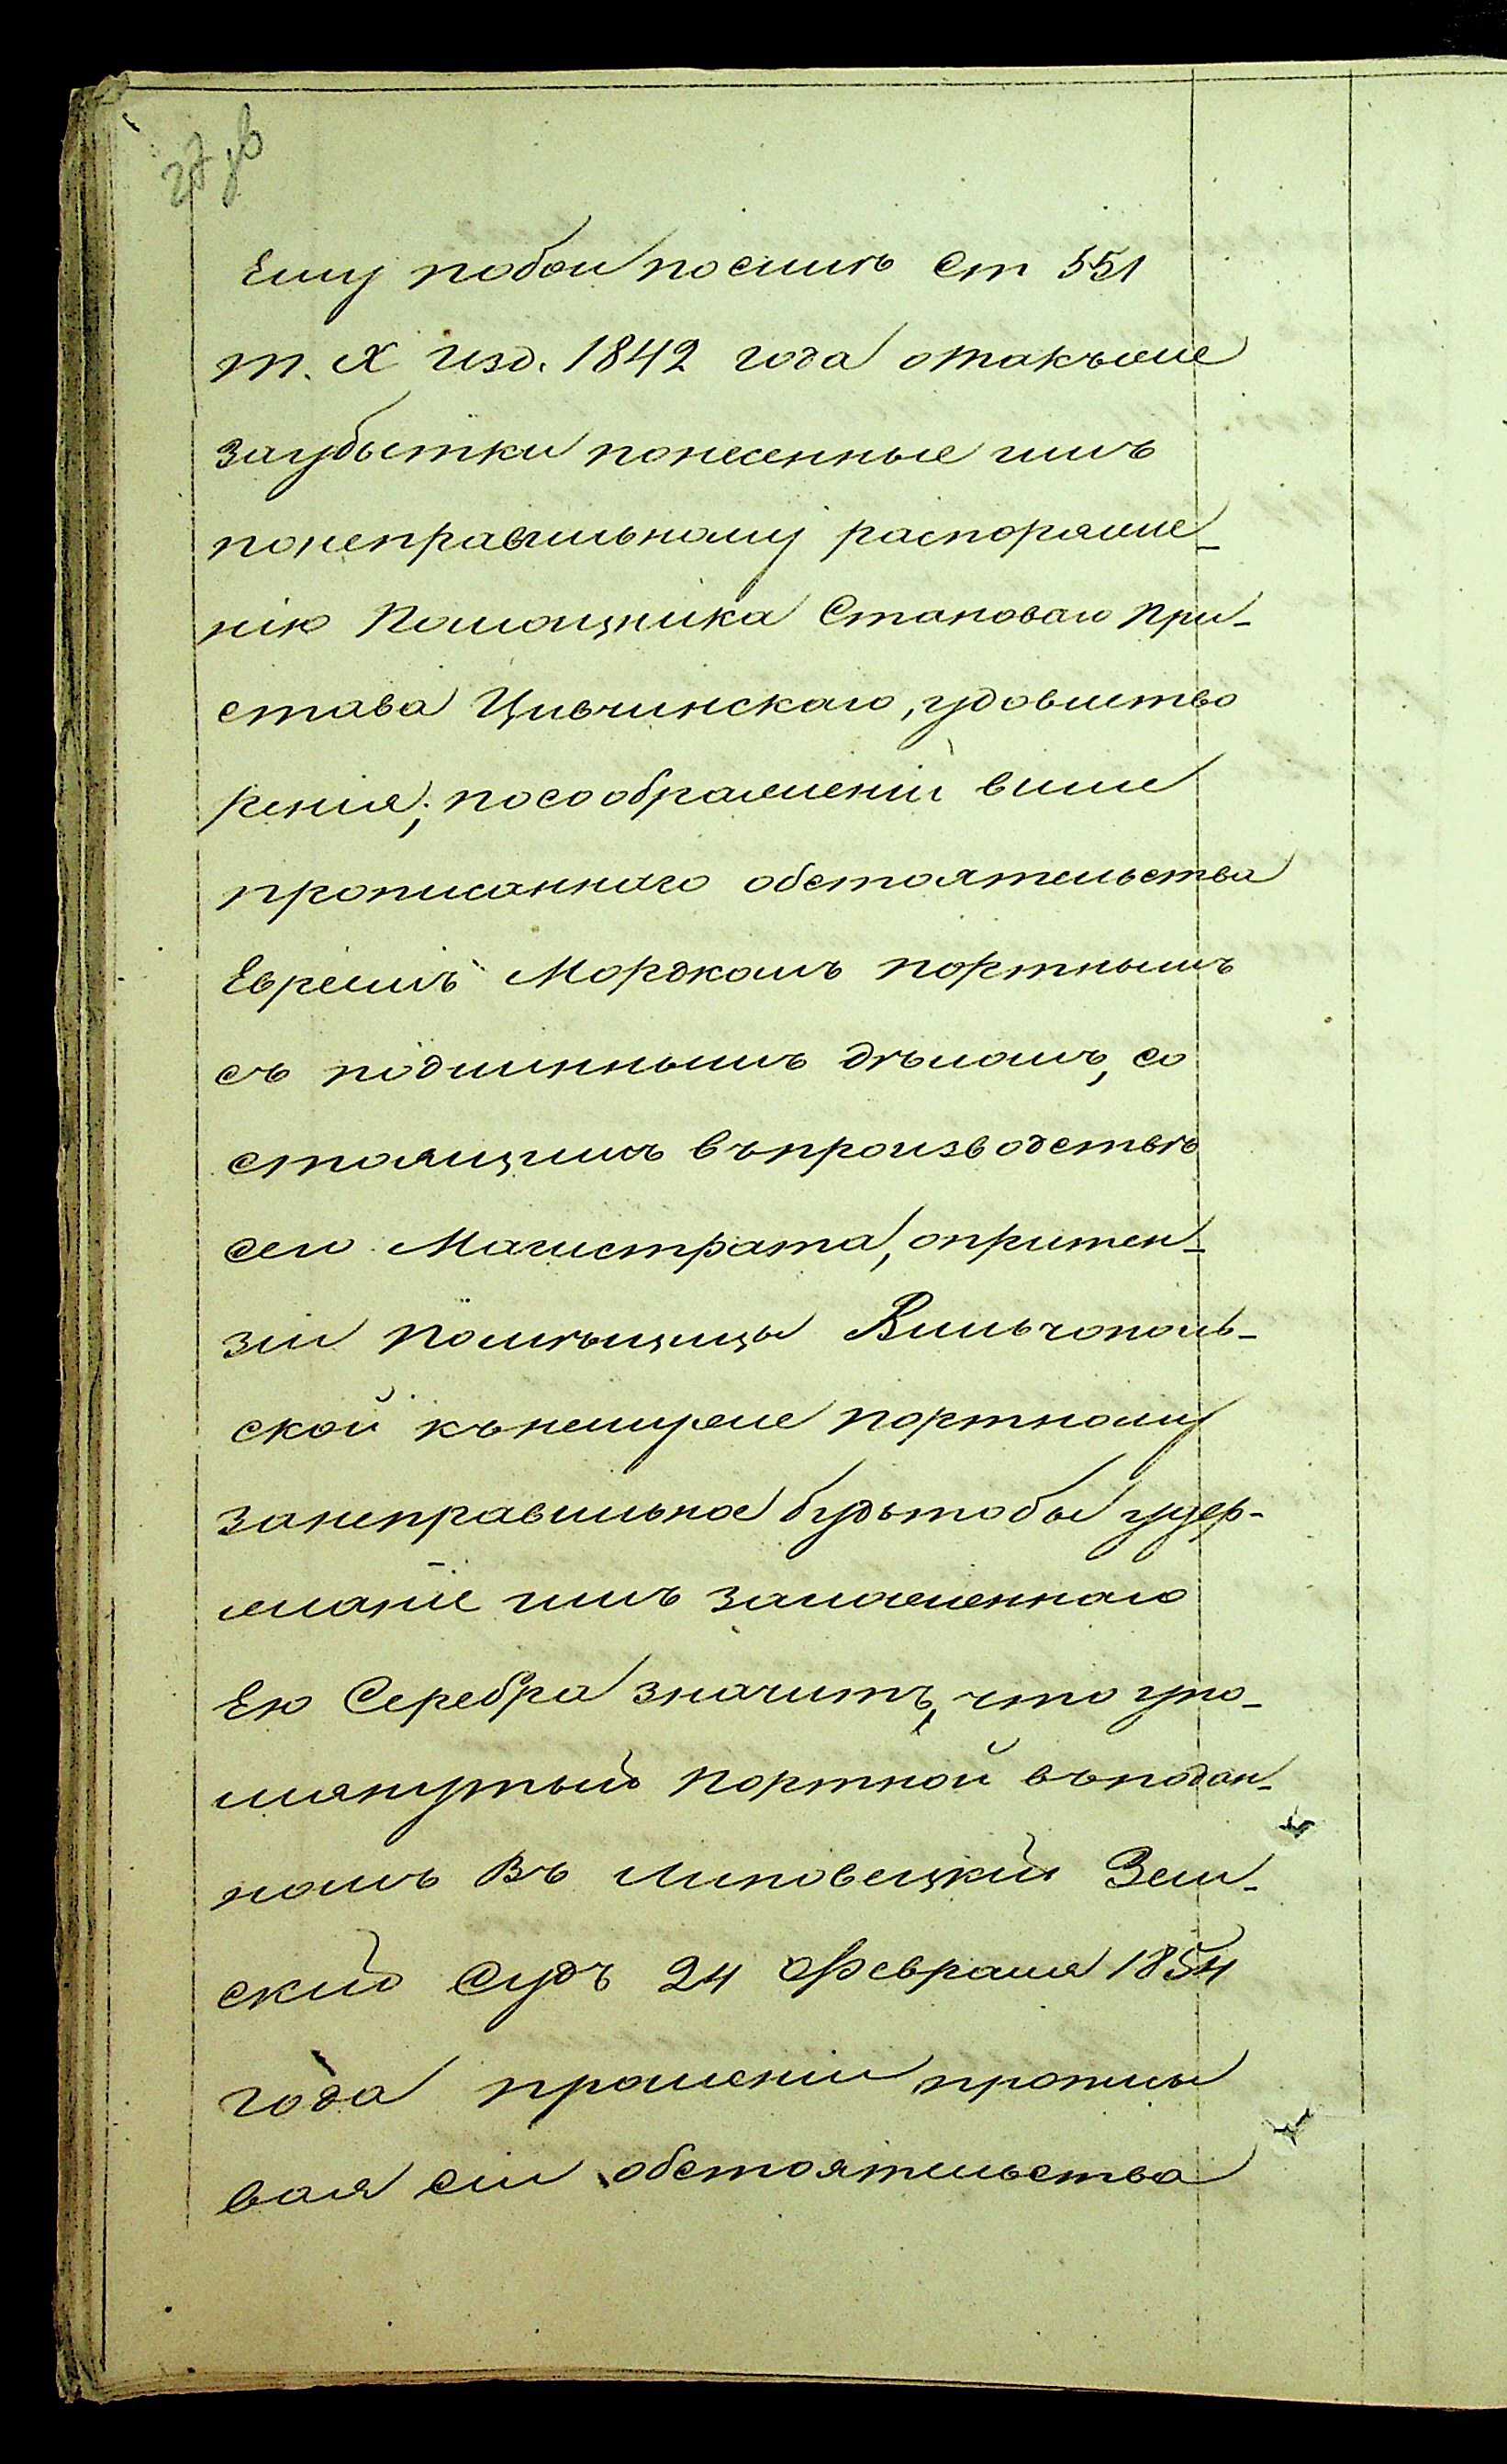 Ему побои посилѣ Ст 551
т. X изд. 1842 года отакъже
заубытки понесенные имъ
понеправильному распоряже-
нію Помощника Становаго При-
става Цивчинскаго, удовлетво
ренія; посоображеніи више
прописаннаго обстоятельства
Евреимъ Мордкомъ портнымъ
съ подлиннымъ дѣломъ, со
стоящимъ въпроизводствѣ
сего Магистрата, опритен-
зіи помѣщицы Вильчополь-
ской кънемуже портному
занеправильное будьтобы удер-
жаніе имъ заложеннаго
Ею Серебра значитъ, что упо-
мянутый портной въподан-
номъ Въ Липовецкій Зем-
скій Судъ 24 Февраля 1854
года прошеніи прописы
вая сіи обстоятельства